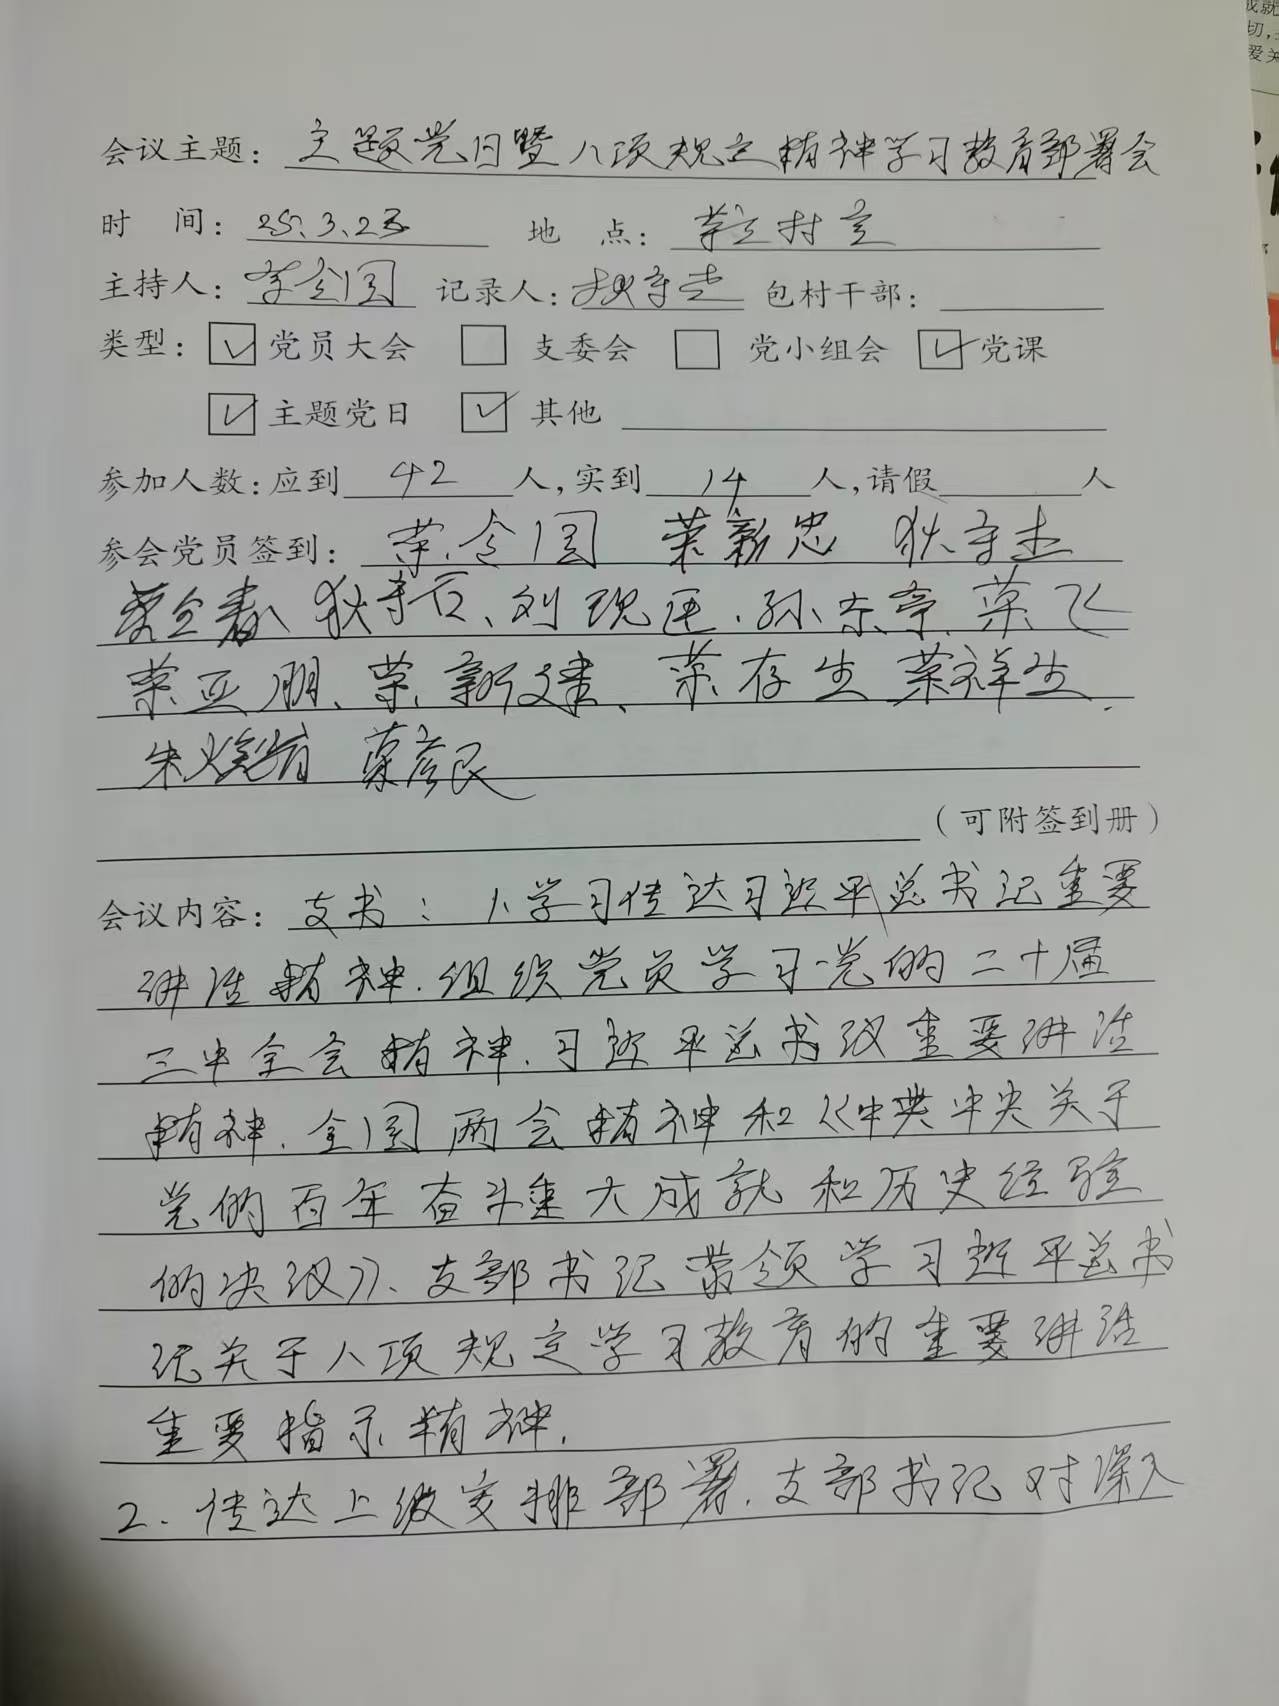 会议主题: 主题党日暨八项规定精神学习教育部署会
时 间: 25.3.25 地 点: 村室
主持人: 荣全国 记录人: 狄守志 包村干部:
类型: 党员大会 支委会 党小组会 党课
主题党日 其他
参加人数: 应到 42 人, 实到 14 人, 请假 人
参会党员签到: 荣全国 荣新忠 狄守志
荣全春 狄守石、刘现廷.孙东亭.荣飞
荣亚朋、荣新建、荣存生 荣祥生.
朱 荣彦民
(可附签到册)
会议内容: 支书: 1、学习传达习近平总书记重要
讲话精神.组织党员学习党的二十届
三中全会精神.习近平总书记重要讲话
精神.全国两会精神和《中共中央关于
党的百年奋斗重大成就和历史经验
的决议》、支部书记带领学习近平总书
记关于八项规定学习教育的重要讲话
重要指示精神.
2.传达上级安排部署.支部书记对深入